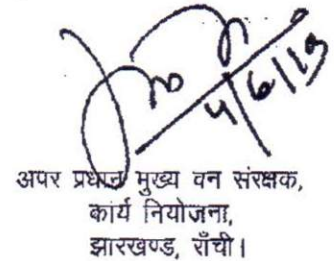 4/6/19
अपर प्रधान मुख्य वन संरक्षक,
कार्य नियोजना,
झारखण्ड, राँची।